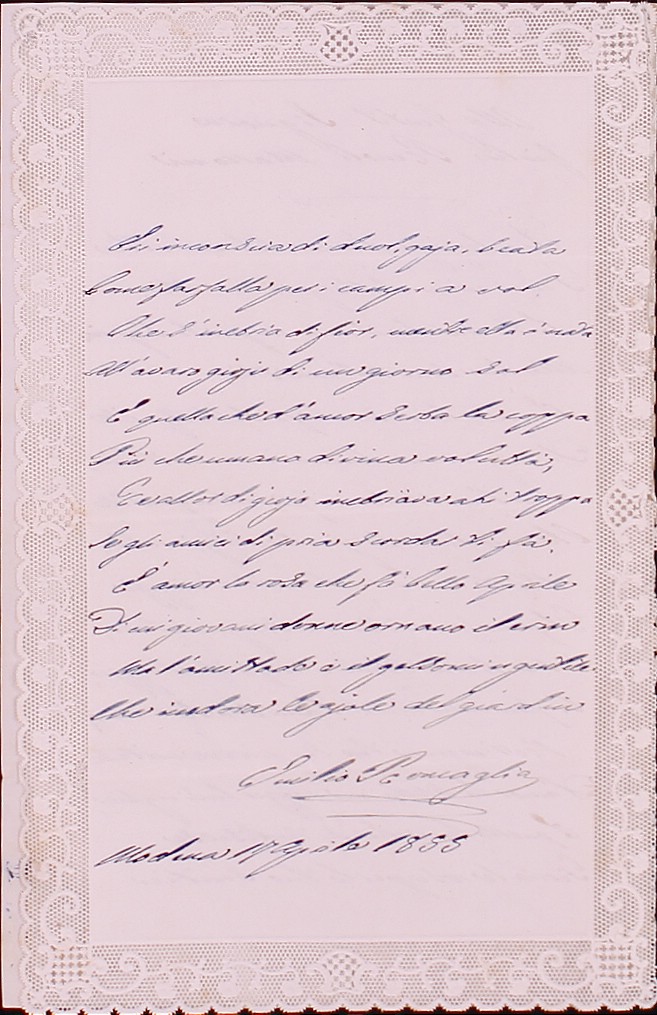 Sei inconscia di duol, gaja, beata
Come farfalla per i campi a vol
Che s'inebria di fior, mentre ella è nata
All'avaro gioir di un giorno sol
È quella che d'amor serba la coppa
Più che umana divina voluttà,
E vallor di gioja inebriava ahi troppo
Se gli amici di pria scordar ti fà.
È amor la rosa che fà bello Aprile
Di cui giovani donne ornano il crin
Ma l'amistade è il gelsomin gentile
Che indora le ajole del giardin
Emilio Roncaglia
Modena 17 Aprile 1855